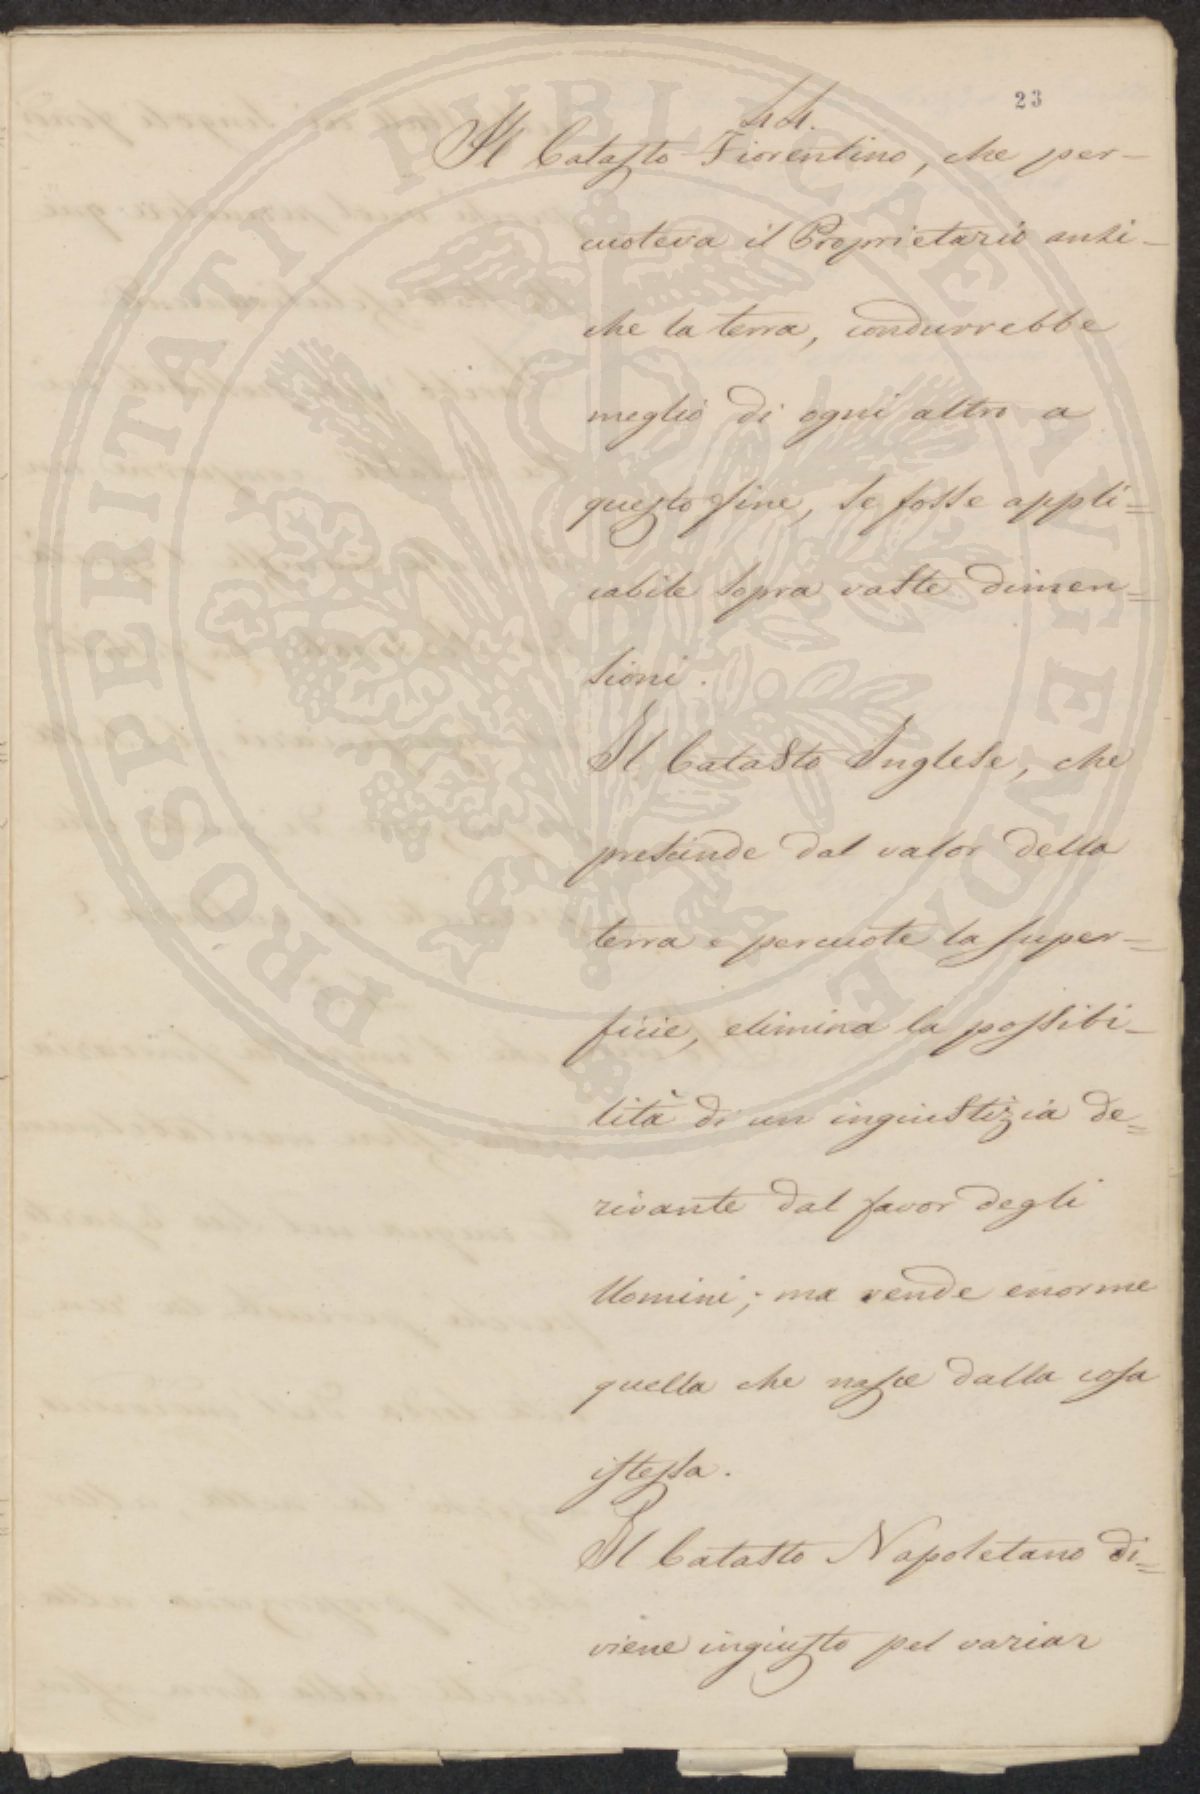 23
44.
Il Catasto Fiorentino, che per-
cuoteva il Proprietario anti-
che la terra, condurrebbe
meglio di ogni altro a
questo fine, se fosse appli=
cabile sopra vaste dimen=
sioni.
Il Catasto Inglese, che
prescinde dal valor della
terra e percuote la super=
ficie, elimina la possibi-
lità di un ingiustizia de=
rivante dal favor degli
Uomini; ma rende enorme
quella che nasce dalla cosa
istessa.
Il Catasto Napoletano di=
viene ingiusto pel variar
PROSPERITATI PUBLICAE AUGENDAE